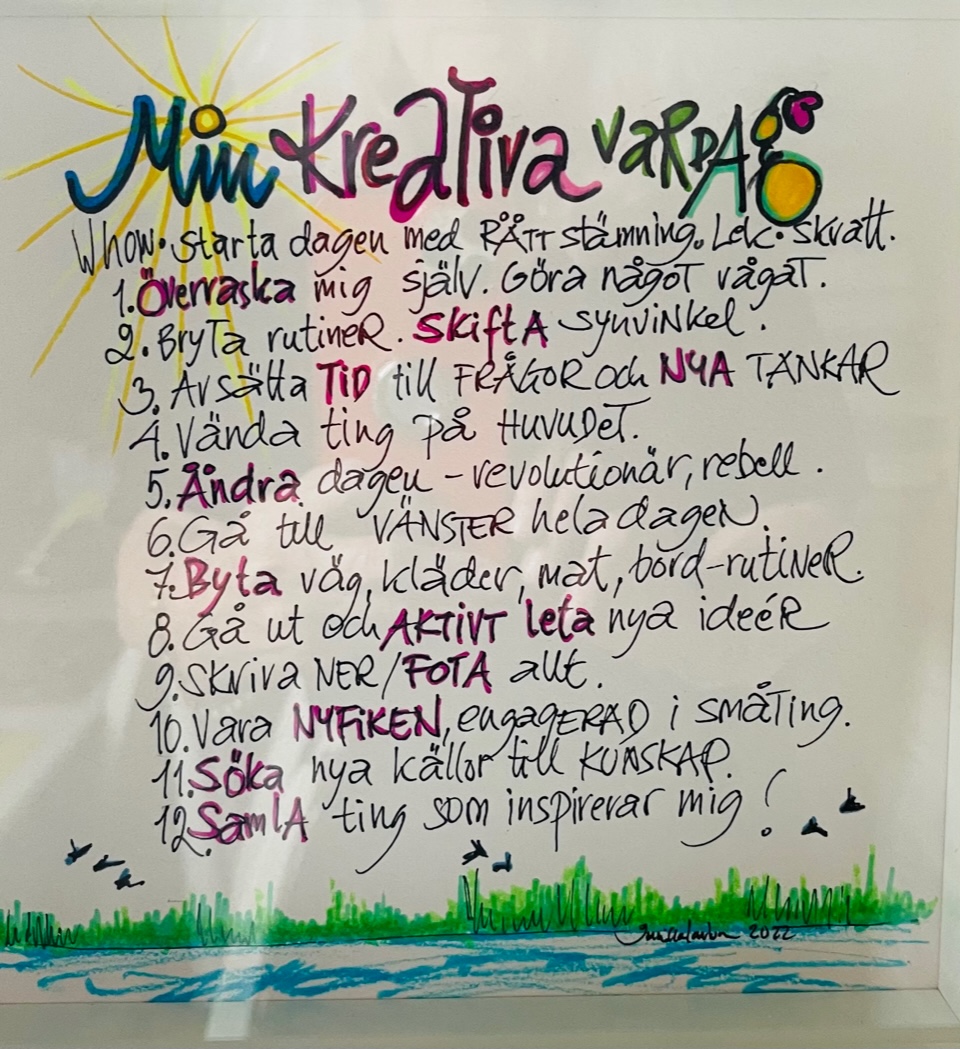 Min Kreativa vardag
Whow. starta dagen med RÄTT stämning. Lek. skratt.
1. Överraska mig själv. Göra något vågat.
2. Bryta rutiner. Skifta synvinkel.
3. Avsätta TID till FRÅGOR och NYA TANKAR
4. Vända ting på HUVUDET.
5. Ändra dagen – revolutionär, rebell.
6. Gå till VÄNSTER hela dagen.
7. Byta väg, kläder, mat, bord-rutiner.
8. Gå ut och AKTIVT leta nya ideér
9. Skriva NER/FOTA allt.
10. Vara NYFIKEN, engagERAD i småting.
11. Söka nya källor till KUNSKAP.
12. Samla ting som inspirerar mig!
2022